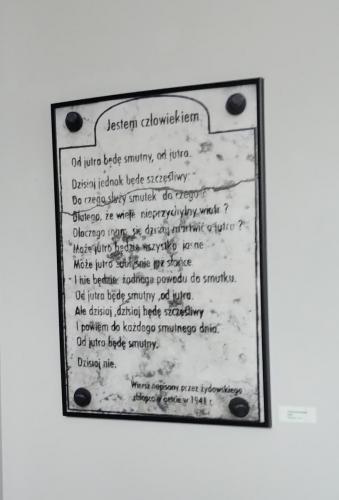 Jestem człowiekiem
Od jutra będę smutny, od jutra.
Dzisiaj jednak będę szczęśliwy.
Do czego służy smutek do czego ?
Dlatego, że wieje nieprzychylny wiatr ?
Dlaczego mam się dzisiaj martwić o jutro ?
Może jutro będzie wszystko jasne
Może jutro słońce
I nie będzie żadnego powodu do smutku.
Od jutra będę smutny ,od jutra.
Ale dzisiaj ,dzisiaj będę szczęśliwy
I powiem do każdego smutnego dnia.
Od jutra będę smutny.
Dzisiaj nie.
Wiersz napisany przez żydowskiego
chłopca w getcie w 1941 r.